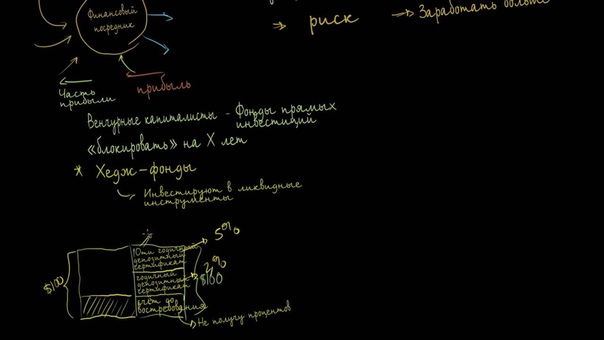 Заработать больше
⇒ риск
Финансовый
посредник
Часть
прибыли
прибыль
Венчурные капиталисты - Фонды прямых
инвестиций
«блокировать» на X лет
* Хедж-фонды
Инвестируют в ликвидные
инструменты
5%
10ти годичный
депозитный
сертификат
2%
$100
годичный
депозитный
сертификат
$100
счёт до
востребования
Не получу процентов